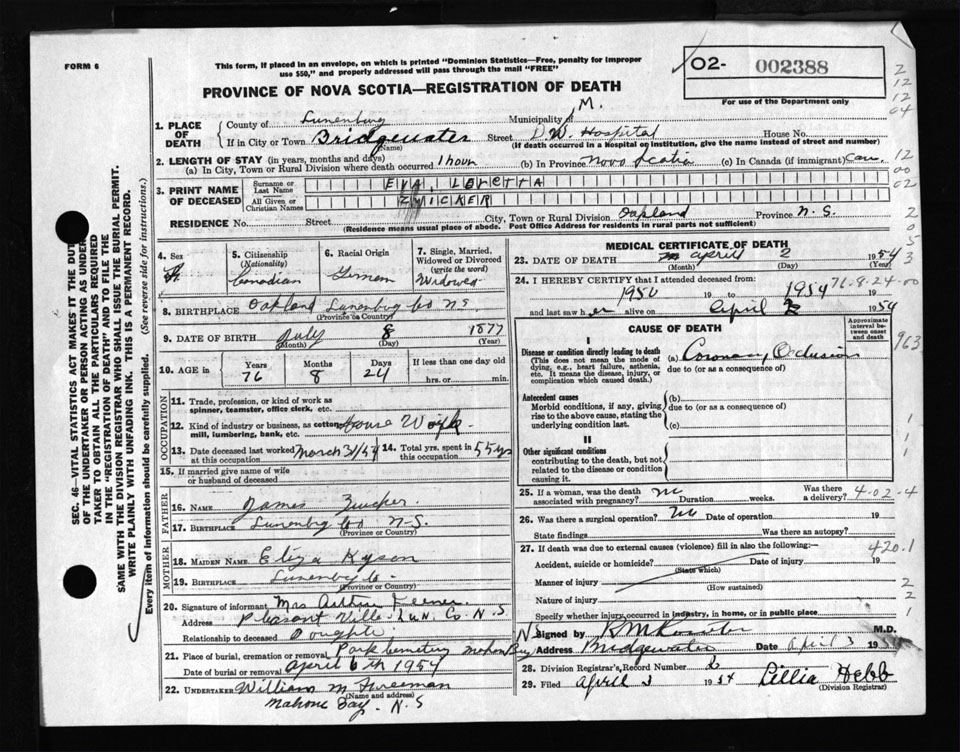 FORM 6
This form, if placed in an envelope, on which is printed "Dominion Statistics—Free, penalty for improper
use $50," and properly addressed will pass through the mail "FREE"
O2- 002388
For use of the Department only
PROVINCE OF NOVA SCOTIA—REGISTRATION OF DEATH
SEC. 46—VITAL STATISTICS ACT MAKES IT THE DUTY
OF THE UNDERTAKER OR PERSON ACTING AS UNDER-
TAKER TO OBTAIN ALL THE PARTICULARS REQUIRED
IN THE "REGISTRATION OF DEATH" AND TO FILE THE
SAME WITH THE DIVISION REGISTRAR WHO SHALL ISSUE THE BURIAL PERMIT.
WRITE PLAINLY WITH UNFADING INK. THIS IS A PERMANENT RECORD.
Every item of information should be carefully supplied. (See reverse side for instructions.)
1. PLACE OF DEATH
County of Lunenburg Municipality of
If in City or Town Bridgewater Street D.M. Hospital House No.
(Name) (If death occurred in a Hospital or institution, give the name instead of street and number)
2. LENGTH OF STAY (in years, months and days)
(a) In City, Town or Rural Division where death occurred 1 hour (b) In Province Nova Scotia (c) In Canada (if immigrant) Can.
3. PRINT NAME OF DECEASED
Surname or Last Name EVA, LORETTA
All Given or Christian Names ZWICKER
RESIDENCE No. Street City, Town or Rural Division Oakland Province N.S.
(Residence means usual place of abode. Post Office Address for residents in rural parts not sufficient)
4. Sex F.
5. Citizenship (Nationality) Canadian
6. Racial Origin German
7. Single, Married, Widowed or Divorced (write the word) Widowed
8. BIRTHPLACE Oakland Lunenburg Co N.S.
(Province or Country)
9. DATE OF BIRTH July 8 1877
(Month) (Day) (Year)
10. AGE in Years 76 Months 8 Days 24 If less than one day old hrs. or min.
OCCUPATION
11. Trade, profession, or kind of work as
spinner, teamster, office clerk, etc.
12. Kind of industry or business, as cotton
mill, lumbering, bank, etc. House Work
13. Date deceased last worked at this occupation March 31/54 14. Total yrs. spent in this occupation 55 yrs
15. If married give name of wife
or husband of deceased
FATHER
16. NAME James Zwicker
17. BIRTHPLACE Lunenbg Co N.S.
(Province or Country)
MOTHER
18. MAIDEN NAME Eliza Kyson
19. BIRTHPLACE Lunenbg Co
(Province or Country)
20. Signature of informant Mrs Arthur
Address Pleasant Ville Lun. Co N.S
Relationship to deceased Doughter
21. Place of burial, cremation or removal Park Cemetery Mahone Bay N.S.
Date of burial or removal April 6th 1954
22. UNDERTAKER William M Freeman
(Name and address)
Mahone Bay - N.S
MEDICAL CERTIFICATE OF DEATH
23. DATE OF DEATH April 2 1954
(Month) (Day) (Year)
24. I HEREBY CERTIFY that I attended deceased from:
1950 19 to 1954 19
76-8-24-00
and last saw her alive on April 2 1954
CAUSE OF DEATH
Approximate interval between onset and death
I
Disease or condition directly leading to death
(This does not mean the mode of dying, e.g., heart failure, asthenia, etc. It means the disease, injury, or complication which caused death.)
(a) Coronary Occlusion
due to (or as a consequence of)
Antecedent causes
Morbid conditions, if any, giving rise to the above cause, stating the underlying condition last.
(b)
due to (or as a consequence of)
(c)
II
Other significant conditions
contributing to the death, but not related to the disease or condition causing it.
25. If a woman, was the death associated with pregnancy? no Duration weeks. Was there a delivery?
4-02-4
26. Was there a surgical operation? no Date of operation 19
State findings Was there an autopsy?
27. If death was due to external causes (violence) fill in also the following:—
420.1
Accident, suicide or homicide? Date of injury 19
(State which)
Manner of injury
(How sustained)
Nature of injury
Specify whether injury occurred in industry, in home, or in public place
Signed by M.D.
Address Bridgewater Date April 3 1954
28. Division Registrar's Record Number 2
29. Filed April 3 1954 Lillia Hebb
(Division Registrar)